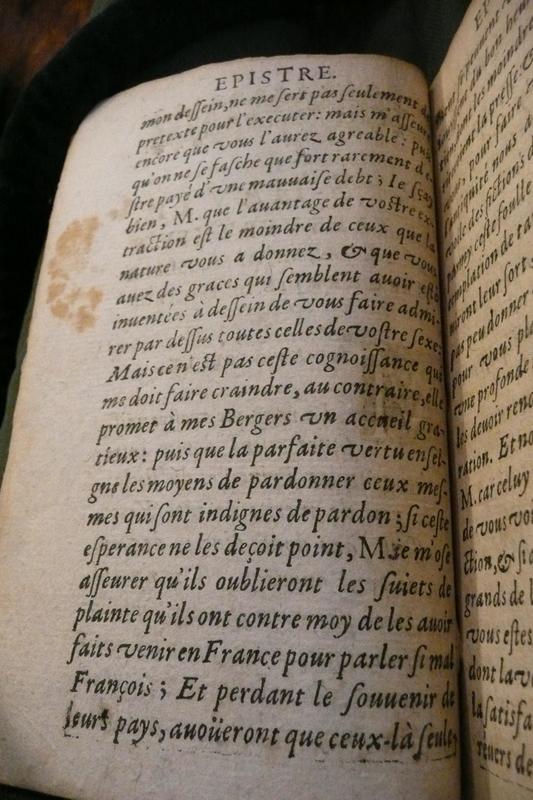 EPISTRE.
mon dessein, ne me sert pas seulement de
pretexte pour l'executer: mais m'asseure
encore que vous l'aurez agreable: puis
qu'on ne se fasche que fort rarement d'e-
stre payé d'vne mauuaise debt; Ie sçay
bien, M. que l'auantage de vostre ex-
traction est le moindre de ceux que la
nature vous a donnez, & que vous
auez des graces qui semblent auoir esté
inuentées à dessein de vous faire admi-
rer par dessus toutes celles de vostre sexe:
Mais ce n'est pas ceste cognoissance qui
me doit faire craindre, au contraire, elle
promet à mes Bergers vn accueil gra-
tieux: puis que la parfaite vertu ensei-
gne les moyens de pardonner ceux mes-
mes qui sont indignes de pardon; si ceste
esperance ne les deçoit point, M. ie m'ose
asseurer qu'ils oublieront les suiets de
plainte qu'ils ont contre moy de les auoir
faits venir en France pour parler si mal
François; Et perdant le souuenir de
leurs pays, auoüeront que ceux-là seule-
pour faire
l'antiquité nous a
voile des fictions d
ceste foulle
pas peu donner
pour vous pl
vne profonde
les deuoir ren
ration. Et no
M. car celuy
de vous voi
ction, & si
grands de l
vous estes
dont la v
la satisfa